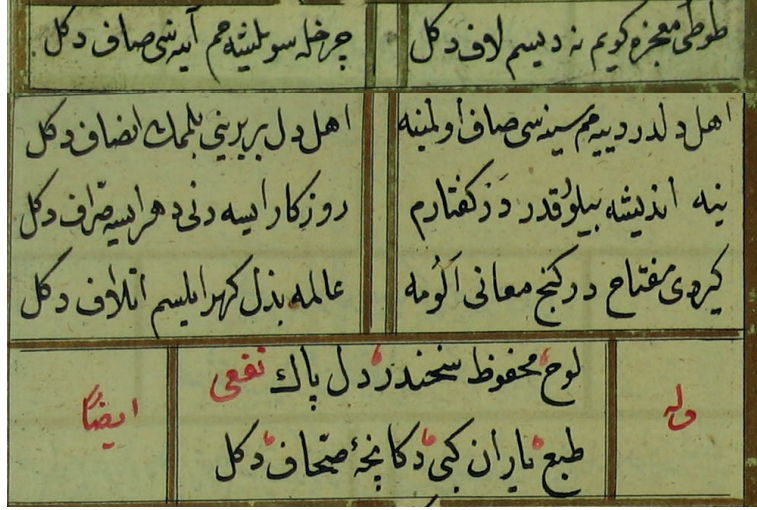 طوطیٔ معجزه كویم نه دیسم لاف دكل
چرخله سویلیشه مم آینه سی صاف دكل
اهل دلدر دییه مم سینه سی صاف اولمینه
اهل دل بربرینی بلممك انصاف دكل
ینه اندیشه بیلور قدر در كفتارم
روزكار ایسه دنی دهر ایسه صراف دكل
كیردی مفتاح در كنج معانی الومه
عالمه بذل كهر ایلسم اتلاف دكل
وله
لوح محفوظ سخندر دل پاك نفعی
طبع یاران كبی دكانچهٔ صحاف دكل
ایضا